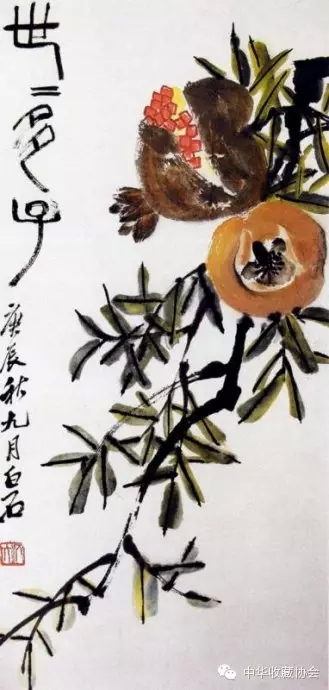 世〻多子
庚辰秋九月白石
中华收藏协会